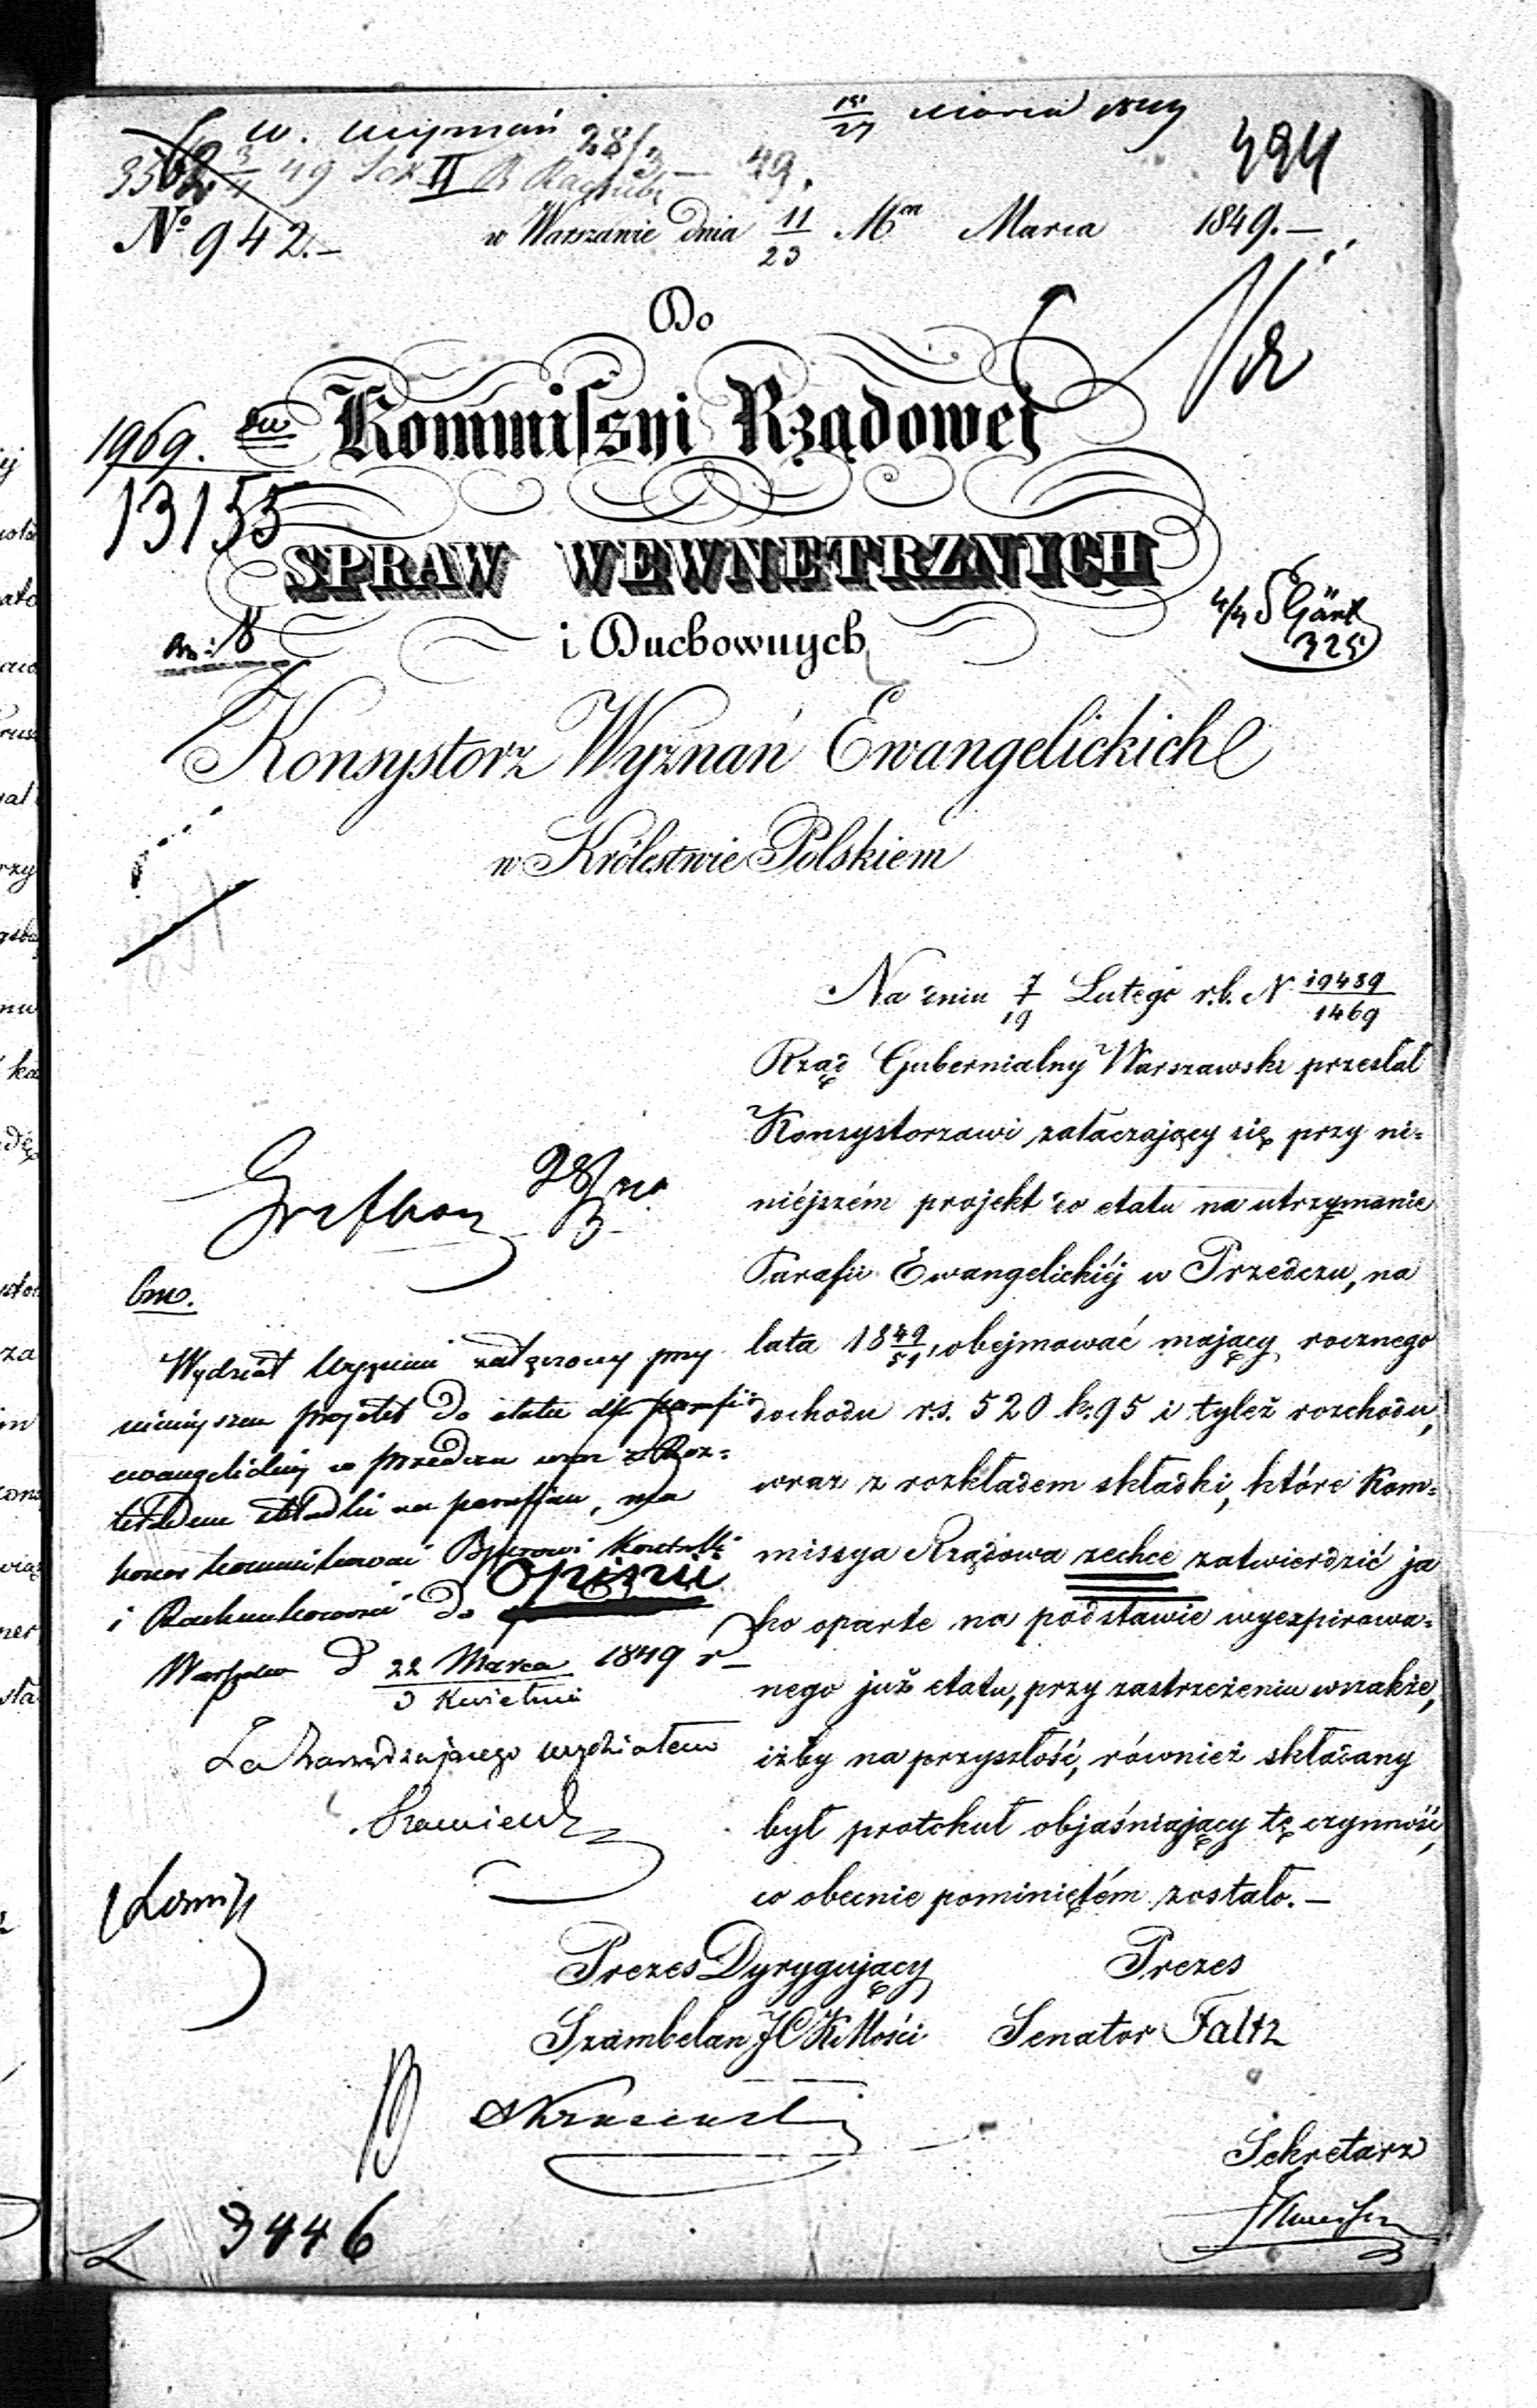 15/27 Marca 1849
W. Wyznań 28/3 — 49.
494
3562 3/4 49 Sek II B Rachub
№ 942.—
w Warszawie dnia 11/23 Mca Marca 1849.—
Do
Kommissyi Rządowej
1969.
13155
SPRAW WEWNĘTRZNYCH
i Duchownych
4/4
325
Konsystorz Wyznań Ewangelickich
w Królestwie Polskiem
Na dniu 7/19 Lutego r.b. N 19489/1469
Rząd Gubernialny Warszawski przesłał
Konsystorzowi załączający się przy ni-
niéjszém projekt do etatu na utrzymanie
Parafii Ewangelickiéj w Przedczu, na
lata 1849/51, obejmować mający rocznego
dochodu r.s. 520 k. 95 i tyleż rozchodu,
wraz z rozkładem składki, które Kom-
missya Rządowa zechce zatwierdzić ja
ko oparte na podstawie wyexpirowa-
nego już etatu, przy zastrzeżeniu wszakże,
iżby na przyszłość, również składany
był protokuł objaśniający tę czynność,
co obecnie pominiętém zostało.—
28/3
Wydział Wyznań załączony przy
niniejszem projekt do etatu dla parafii
ewangelickiej w Przedczu wraz z Roz-
kładem składki na parafian, ma
honor kommunikować Biurowi Kontrolli
i Rachunkowości do Opinii
Warszawa d 22 Marca/3 Kwietnia 1849 r—
Za Zarządzającego Wydziałem
Prezes Dyrygujący
Szambelan JCKMości
Prezes
Senator Faltz
Sekretarz
3446